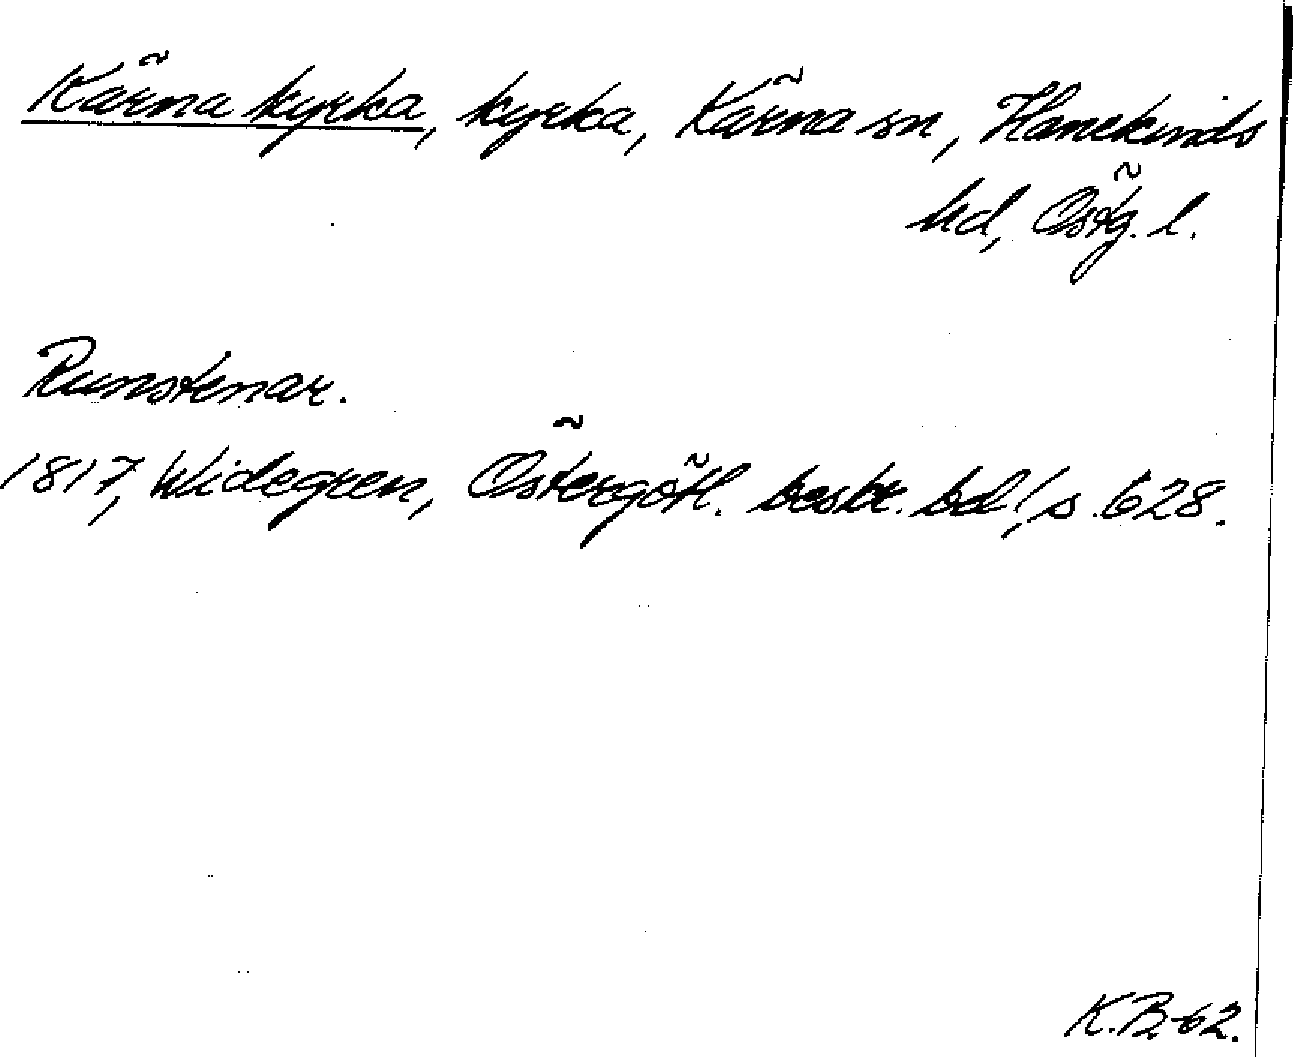 Kärna kyrka, kyrka, Kärna sn, Hanekinds
hd, Östg. l.
Runstenar.
1817, Widegren, Östergötl. beskr. bd 1, s. 628.
K.B.-62.